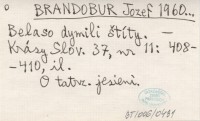 BRANDOBUR Jozef 1960...
Belaso dymili štíty. —
Krásy Slov. 37, nr 11: 408-
-410, il.
O tatrz. jesieni.
BT/006/0431